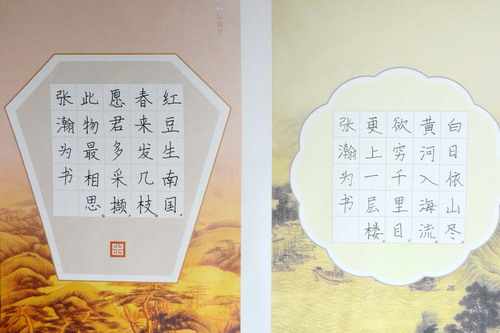 红豆生南国,
春来发几枝。
愿君多采撷,
此物最相思。
张瀚为书
白日依山尽,
黄河入海流。
欲穷千里目,
更上一层楼。
张瀚为书